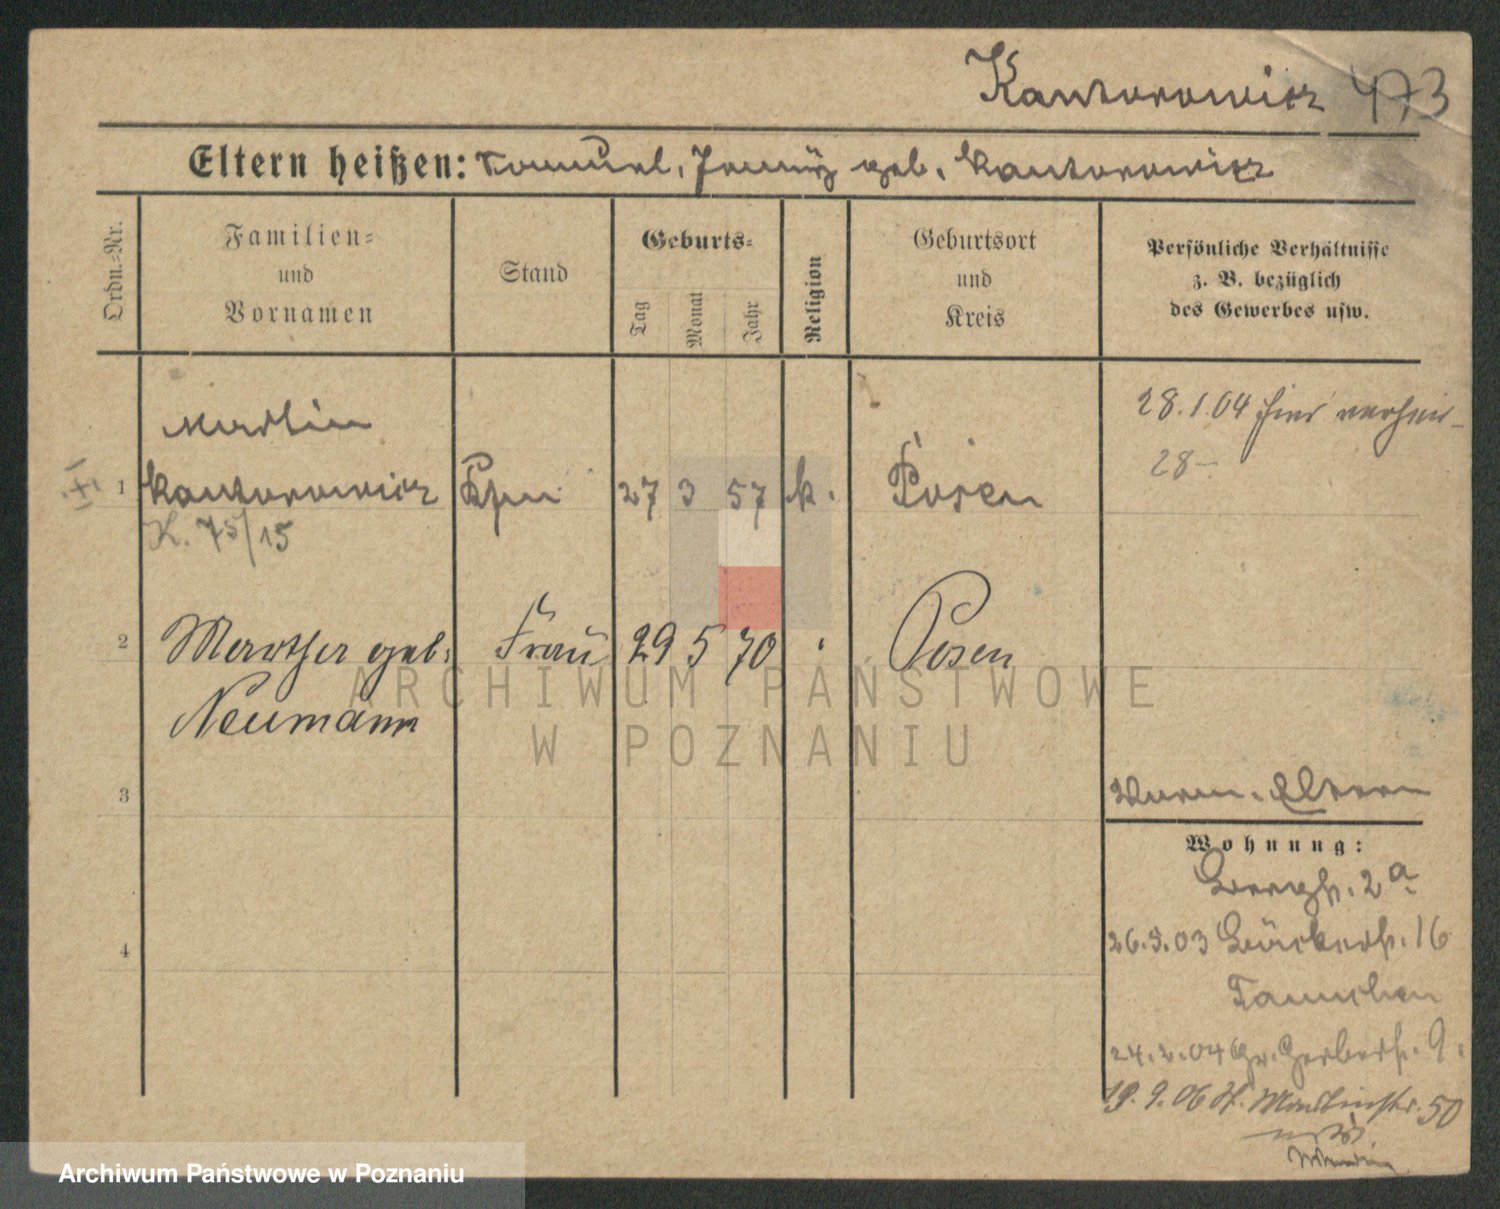 Kantorowicz 473
Eltern heißen: Samuel, geb. Kantorowicz
Ordn.=Nr.
Familien=
und
Vornamen
Stand
Geburts=
Tag
Monat
Jahr
Religion
Geburtsort
und
Kreis
Persönliche Verhältnisse
z. B. bezüglich
des Gewerbes usw.
Martin
1 Kantorowicz Kfm 27 3 57 Posen
K. 75/15
28.1.04 hier verheir-
28-
2 Martha geb. Frau 29 5 70 Posen
Neumann
3
4
Wohnung:
Bergstr. 2a
26.3.03 Bäckerstr. 16
24.2.04 Gr. Gerberstr. 9.
19.9.06 St. Martinstr. 50
ARCHIWUM PAŃSTWOWE
W POZNANIU
Archiwum Państwowe w Poznaniu